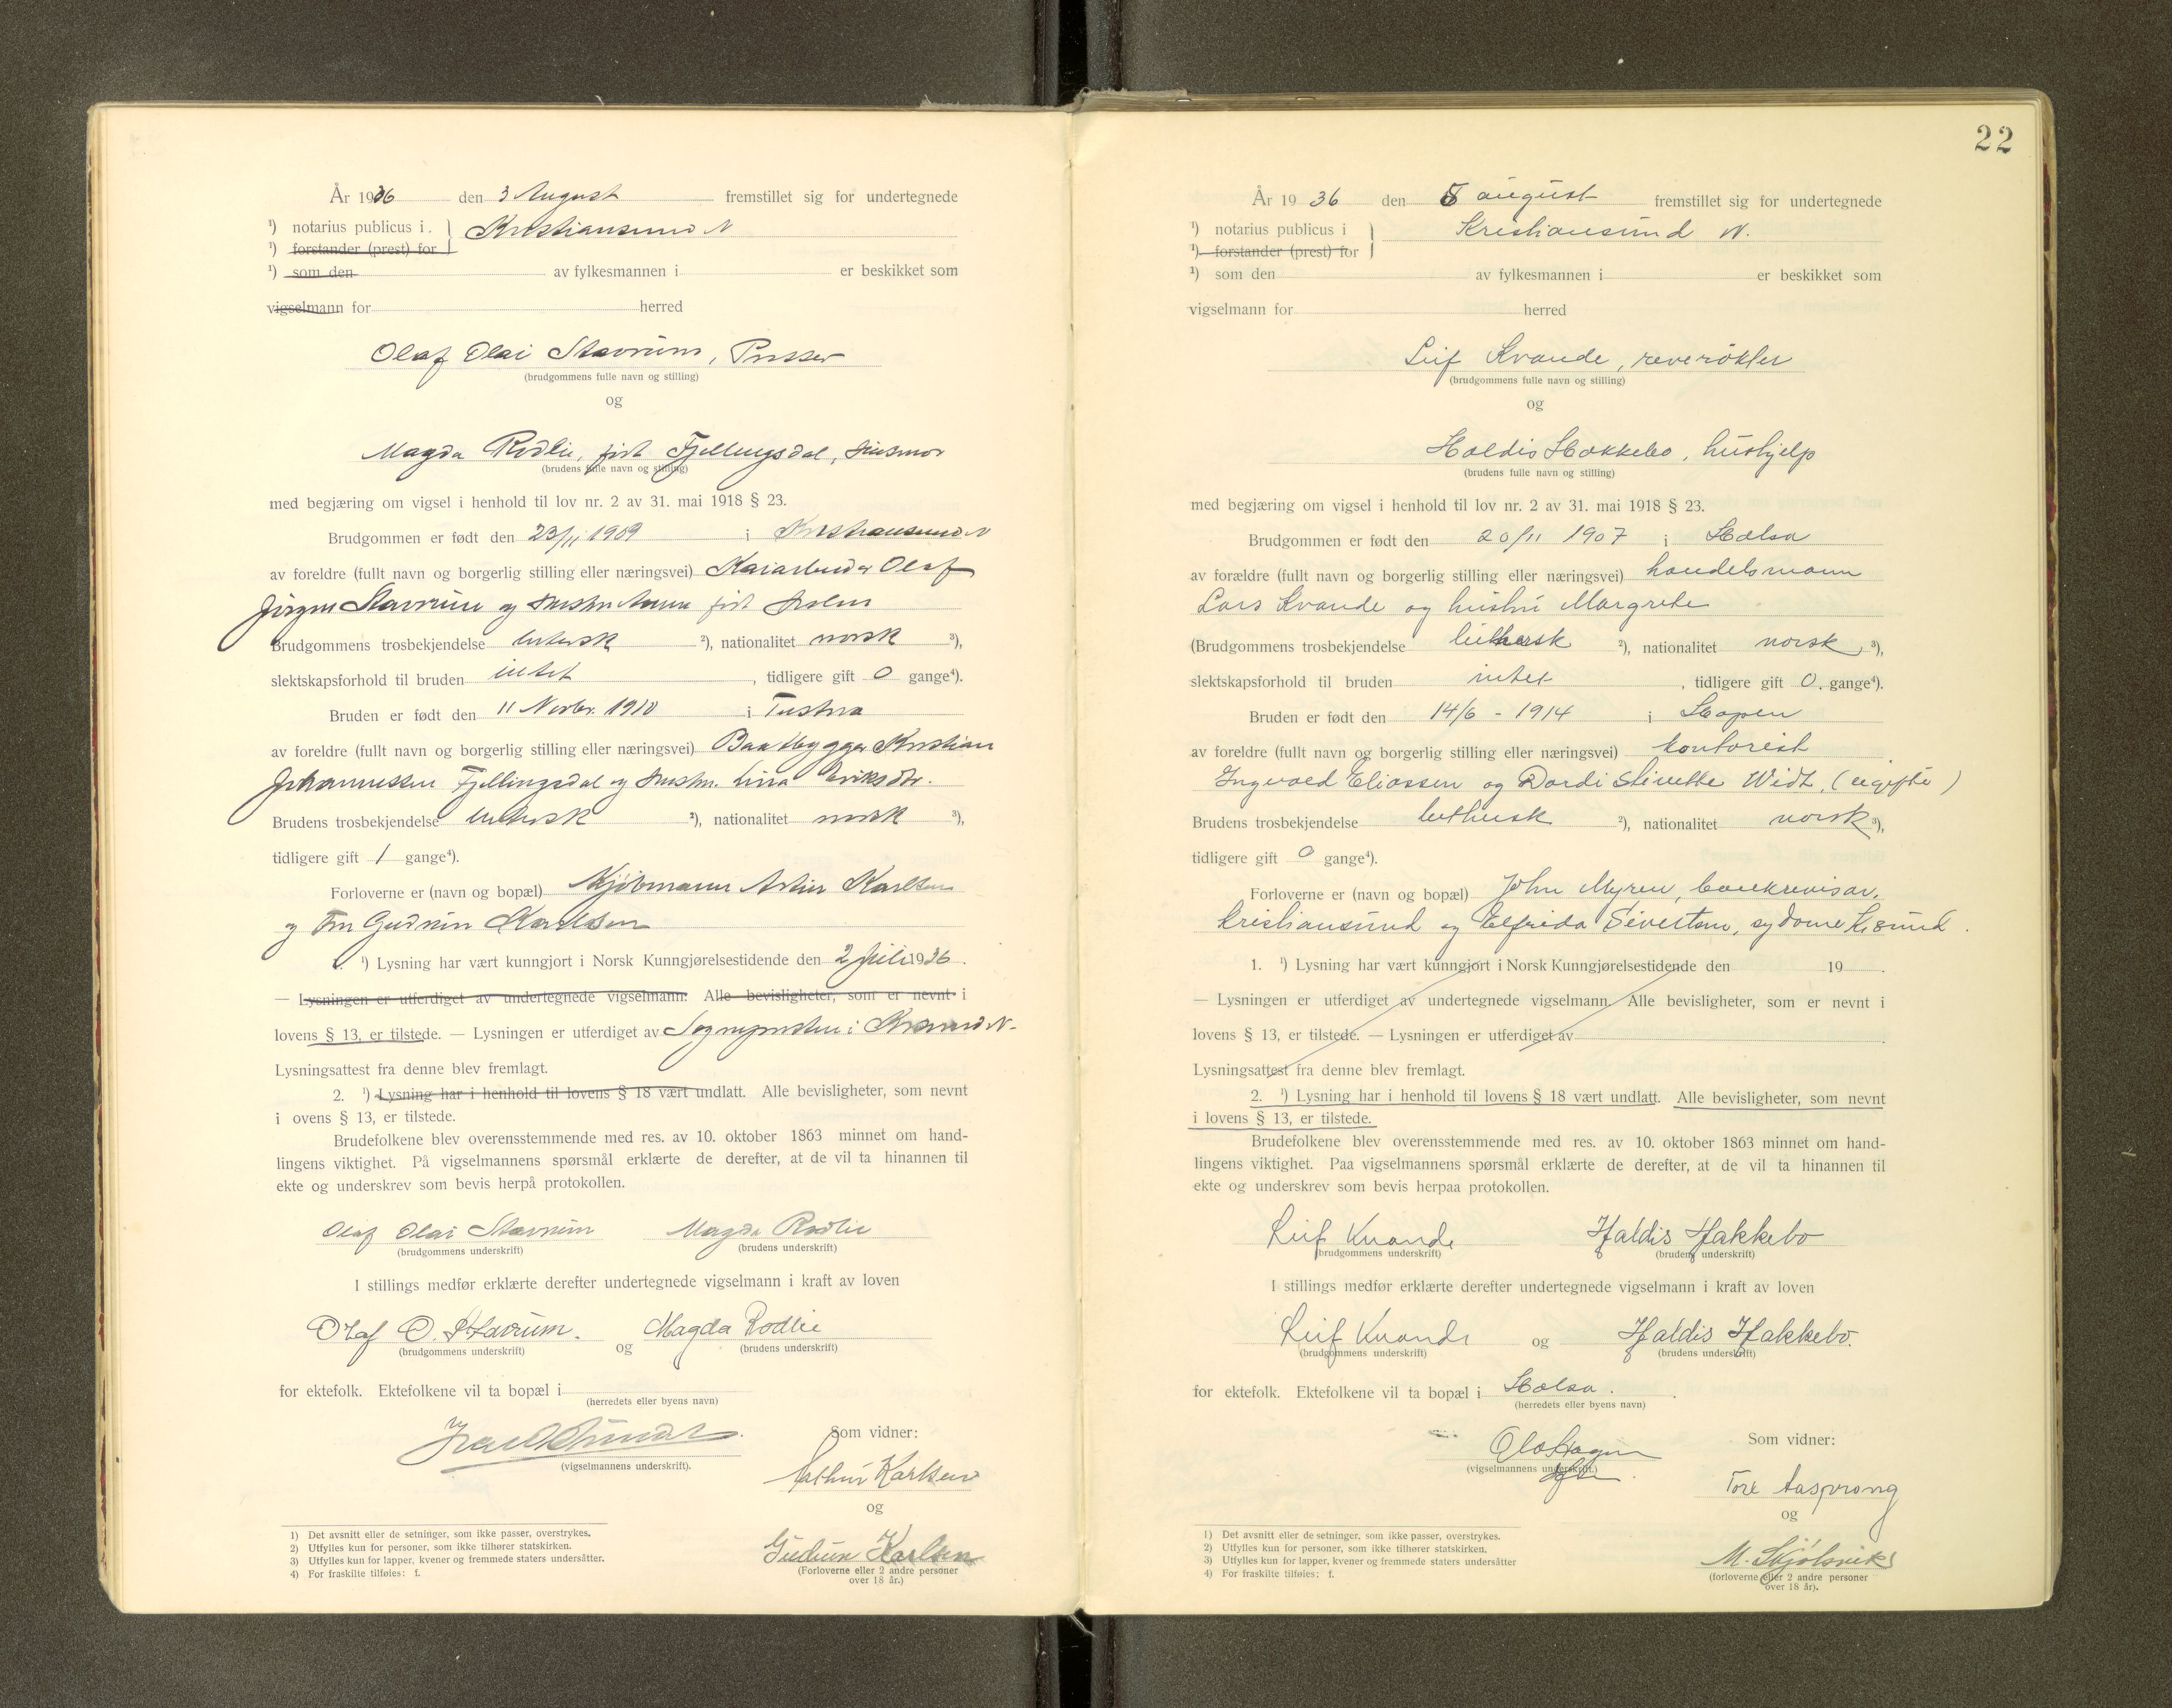 År 1936 den 3 August fremstillet sig for undertegnede
¹) notarius publicus i. Kristiansund N
¹) forstander (prest) for
¹) som den av fylkesmannen i er beskikket som
vigselmann for herred
Olaf Olai Stavrum, Pusser
(brudgommens fulle navn og stilling)
og
Magda Rodlie, født Fjellingsdal, husmor
(brudens fulle navn og stilling)
med begjæring om vigsel i henhold til lov nr. 2 av 31. mai 1918 § 23.
Brudgommen er født den 23/11 1909 i Kristiansund N
av foreldre (fullt navn og borgerlig stilling eller næringsvei) Kaiarbeider Olaf
Jørgen Stavrum og hustru Anna født Holm
Brudgommens trosbekjendelse luthersk ²), nationalitet norsk ³),
slektskapsforhold til bruden intet, tidligere gift 0 gange⁴).
Bruden er født den 11 Novbr. 1910 i Tustna
av foreldre (fullt navn og borgerlig stilling eller næringsvei) Baatbygger Kristian
Johannessen Fjellingsdal og hustru Lina Eriksdtr.
Brudens trosbekjendelse luthersk ²), nationalitet norsk ³),
tidligere gift 1 gange⁴).
Forloverne er (navn og bopæl) Kjøbmann Artur Karlsen
og Fru Gudrun Karlsen
¹) Lysning har vært kunngjort i Norsk Kunngjørelsestidende den 2 Juli 1936.
— Lysningen er utferdiget av undertegnede vigselmann. Alle bevisligheter, som er nevnt i
lovens § 13, er tilstede. — Lysningen er utferdiget av Sognepresten i Krsund N.
Lysningsattest fra denne blev fremlagt.
2. ¹) Lysning har i henhold til lovens § 18 vært undlatt. Alle bevisligheter, som nevnt
i ovens § 13, er tilstede.
Brudefolkene blev overensstemmende med res. av 10. oktober 1863 minnet om hand-
lingens viktighet. På vigselmannens spørsmål erklærte de derefter, at de vil ta hinannen til
ekte og underskrev som bevis herpå protokollen.
Olaf Olai Stavrum Magda Rodlie
(brudgommens underskrift) (brudens underskrift)
I stillings medfør erklærte derefter undertegnede vigselmann i kraft av loven
Olaf O. Stavrum. og Magda Rodlie
(brudgommens underskrift) (brudens underskrift)
for ektefolk. Ektefolkene vil ta bopæl i
(herredets eller byens navn)
(vigselmannens underskrift).
Som vidner:
Arthur Karlsen
og
Gudrun Karlsen
(Forloverne eller 2 andre personer
over 18 år.)
1) Det avsnitt eller de setninger, som ikke passer, overstrykes.
2) Utfylles kun for personer, som ikke tilhører statskirken.
3) Utfylles kun for lapper, kvener og fremmede staters undersåtter.
4) For fraskilte tilføies: f.
22
År 1936 den 8 august fremstillet sig for undertegnede
¹) notarius publicus i Kristiansund N.
¹) forstander (prest) for
¹) som den av fylkesmannen i er beskikket som
vigselmann for herred
Leif Kvande, reverøkter
(brudgommens fulle navn og stilling)
og
Haldis Hakkebo, hushjelp
(brudens fulle navn og stilling)
med begjæring om vigsel i henhold til lov nr. 2 av 31. mai 1918 § 23.
Brudgommen er født den 20/11 1907 i Halsa
av forældre (fullt navn og borgerlig stilling eller næringsvei) handelsmann
Lars Kvande og hustru Margrete
(Brudgommens trosbekjendelse luthersk ²), nationalitet norsk ³),
slektskapsforhold til bruden intet, tidligere gift 0. gange⁴).
Bruden er født den 14/6 - 1914 i Hopen
av foreldre (fullt navn og borgerlig stilling eller næringsvei) kontorist
Ingvald Eliassen og Dordi Sivette Widt, (ugifte)
Brudens trosbekjendelse luthersk ²), nationalitet norsk ³),
tidligere gift 0 gange⁴).
Forloverne er (navn og bopæl) John Myren, bankrevisor,
Kristiansund og Elfrida Sivertsen, sydame Kr.sund.
1. ¹) Lysning har vært kunngjort i Norsk Kunngjørelsestidende den 19 .
— Lysningen er utferdiget av undertegnede vigselmann. Alle bevisligheter, som er nevnt i
lovens § 13, er tilstede. — Lysningen er utferdiget av
Lysningsattest fra denne blev fremlagt.
2. ¹) Lysning har i henhold til lovens § 18 vært undlatt. Alle bevisligheter, som nevnt
i lovens § 13, er tilstede.
Brudefolkene blev overensstemmende med res. av 10. oktober 1863 minnet om hand-
lingens viktighet. Paa vigselmannens spørsmål erklærte de derefter, at de vil ta hinannen til
ekte og underskrev som bevis herpaa protokollen.
Leif Kvande Haldis Hakkebo
(brudgommens underskrift) (brudens underskrift)
I stillings medfør erklærte derefter undertegnede vigselmann i kraft av loven
Leif Kvande og Haldis Hakkebo.
(brudgommens underskrift) (brudens underskrift)
for ektefolk. Ektefolkene vil ta bopæl i Halsa.
(herredets eller byens navn)
Ola Hagen
(vigselmannens underskrift.)
Som vidner:
Tore Aasprong
og
M. Skjølsvik
(forloverne eller 2 andre personer
over 18 år).
1) Det avsnitt eller de setninger, som ikke passer, overstrykes.
2) Utfylles kun for personer, som ikke tilhører statskirken.
3) Utfylles kun for lapper, kvener og fremmede staters undersåtter
4) For fraskilte tilføies: f.